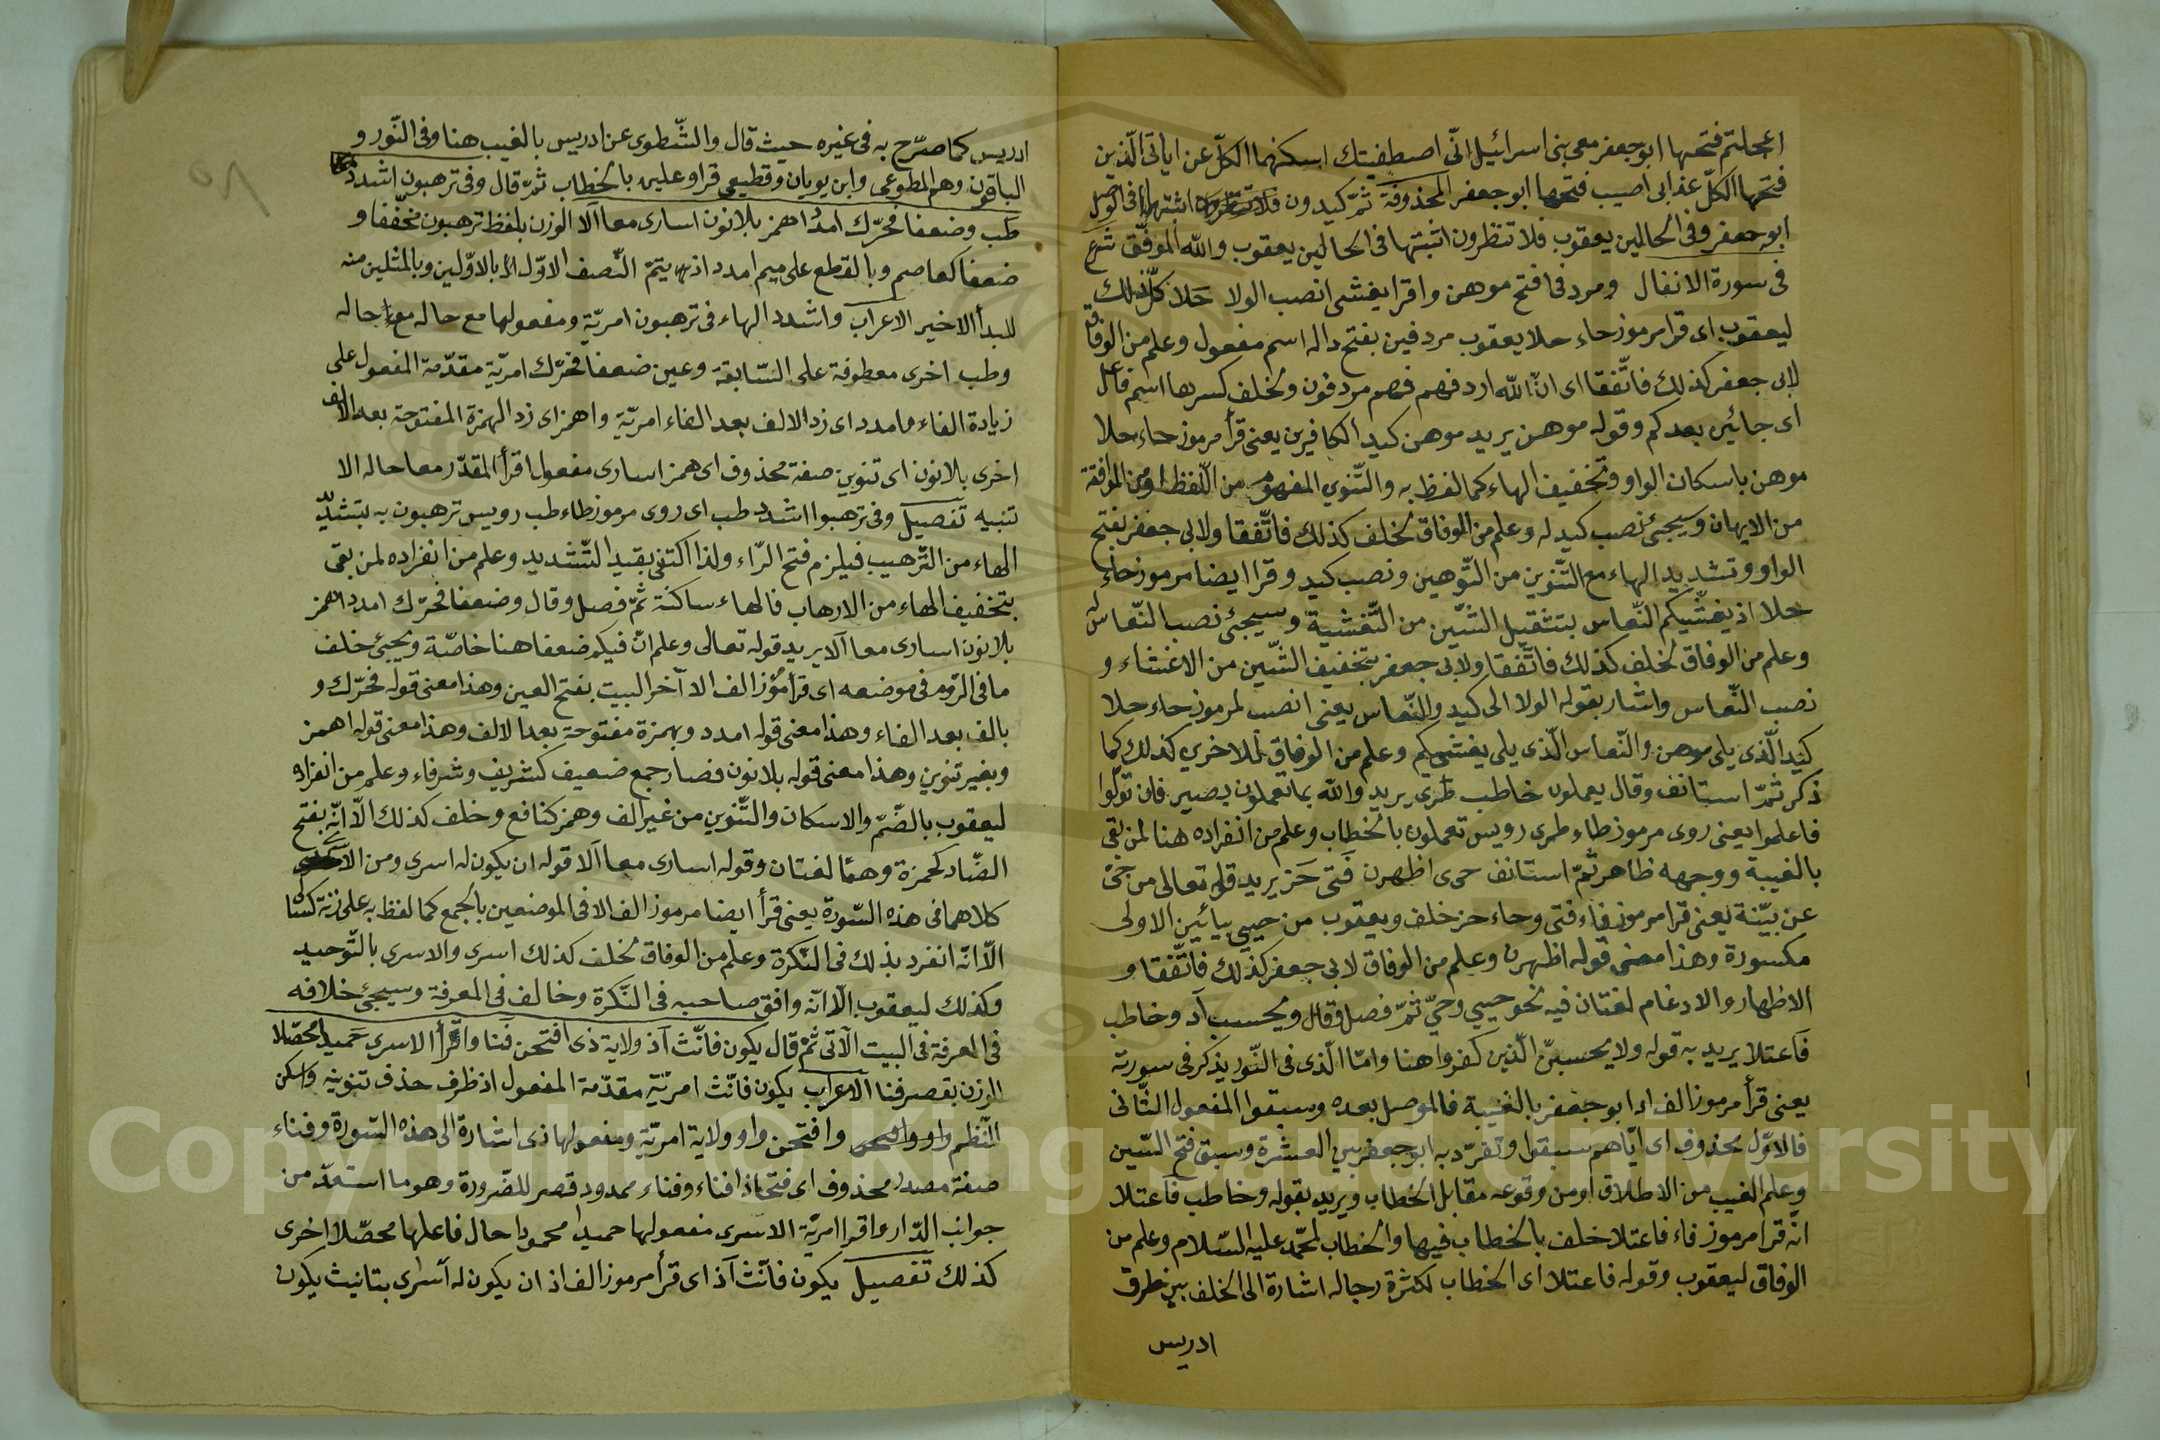 اعجلتم فتحها ابو جعفر معى بنى اسرائيل انّى اصطفيتك اسكنهما الكلّ عن اياتى الّذين
فتحها الكلّ عذابى اصيب فتحها ابو جعفر المحذوفة ثمّ كيدون اثبتها فى الوصل
ابو جعفر وفى الحالين يعقوب فلا تنظرون اثبتها فى الحالين يعقوب والله الموفّق شرع
فى سورة الانفال ومردفى افتح موهن واقرا يغشى انصب الولا حلا كذلك
ليعقوب اى قرا مرموز حاء حلا يعقوب مردفين بفتح داله اسم مفعول وعلم من الوفاق
لابى جعفر كذلك فاتّفقا اى انّ الله اردفهم فهم مردفون ولخلف كسرها اسم فاعل
اى جائين بعدكم وقوله موهن يريد موهن كيد الكافرين يعنى قرأ مرموز حاء حلا
موهن باسكان الواو وتخفيف الهاء كما لفظ به والتّنوين المفهوم من اللّفظ ومن الموافقة
من الايهان وسيجئ نصب كيد له وعلم من الوفاق لخلف كذلك فاتّفقا ولابى جعفر بفتح
الواو وتشديد الهاء مع التّنوين من التّوهين ونصب كيد وقرا ايضا مرموز حاء
حلا اذ يغشّيكم النّعاس بتثقيل الشّين من التّغشية وسيجئ نصب النّعاس له
وعلم من الوفاق لخلف كذلك فاتّفقا ولابى جعفر بتخفيف الشّين من الاغشاء و
نصب النّعاس واشار بقوله الولا الى كيد والنّعاس يعنى انصب لمرموز حاء حلا
كيد الّذى يلى موهن والنّعاس الّذى يلى يغشيكم وعلم من الوفاق للاخرين كذلك كما
ذكر ثمّ استانف وقال يعملون خاطب طرى يريد والله بما تعملون بصير فان تولّوا
فاعلموا يعنى روى مرموز طاء طرى رويس تعملون بالخطاب وعلم من انفراده هنا لمن بقى
بالغيبة ووجهه ظاهر ثمّ استانف حيى اظهرن فتى حز يريد قوله تعالى من حيّ
عن بيّنة يعنى قرا مرموز فاء فتى وحاء حز خلف ويعقوب من حيى بيائين الاولى
مكسورة وهذا معنى قوله اظهرن وعلم من الوفاق لابى جعفر كذلك فاتّفقا و
الاظهار والادغام لغتان فيه نحو حيى وحيّ ثمّ فصل وقال ويحسب اد وخاطب
فاعتلا يريد به قوله ولا يحسبنّ الّذين كفروا هنا وامّا الّذى فى النّور يذكر فى سورته
يعنى قرأ مرموز الف اد ابو جعفر بالغيبة فالموصل بعده وسبقوا المفعول الثّانى
فالاوّل محذوف اى ايّاهم سبقوا وتفرّد به ابو جعفر بين العشرة وسبق فتح السّين
وعلم الغيب من الاطلاق او من وقوعه مقابل الخطاب ويريد بقوله وخاطب فاعتلا
انّه قرا مرموز فاء فاعتلا خلف بالخطاب فيها والخطاب لمحمّد عليه السّلام وعلم من
الوفاق ليعقوب وقوله فاعتلا اى الخطاب لكثرة رجاله اشارة الى الخلف بين طرق
ادريس
ادريس كما صرّح به فى غيره حيث قال والشّطوى عن ادريس بالغيب هنا وفى النّور و
الباقون وهم المطوعى وابن بويان وقطيعى قراو عليه بالخطاب ثمّ قال وفى ترهبون اشدد
طب وضعفا فحرّك امدد اهمز بلا نون اسارى معا الا الوزن بلفظ ترهبون مخفّفا و
ضعفا كعاصم وبالقطع على ميم امدد اذ به يتمّ النّصف الاوّل بالاوّلين وبالمثلين منه
للبدأ الاخير الاعراب واشدد الهاء فى ترهبون امريّة ومفعولها مع حاله حاله
وطب اخرى معطوفة على السّابقة وعين ضعفا فحرّك امريّة مقدّمة المفعول على
زيادة الفاء وامدد اى زد الالف بعد الفاء امريّة واهمز اى زد الهمزة المفتوحة بعد الالف
اخرى بلا نون اى تنوين صفة محذوف اى همز اسارى مفعول اقرأ المقدّر معا حاله الا
تنبيه تفصيل وفى ترهبوا اشدد طب اى روى مرموز طاء طب رويس ترهبون به بتشديد
الهاء من التّرهيب فيلزم فتح الرّاء ولذا اكتفى بقيد التّشديد وعلم من انفراده لمن بقى
بتخفيف الهاء من الارهاب فالهاء ساكنة ثمّ فصل وقال وضعفا فحرّك امدد اهمز
بلا نون اسارى معا الا يريد قوله تعالى وعلم انّ فيكم ضعفا هنا خاصّة ويجئ خلف
ما فى الرّوم فى موضعه اى قرأ مرموز الف الا آخر البيت بفتح العين وهذا معنى قوله فحرّك و
بالف بعد الفاء وهذا معنى قوله امدد وبهمزة مفتوحة بعد الالف وهذا معنى قوله اهمز
وبغير تنوين وهذا معنى قوله بلا نون فصار جمع ضعيف كشريف وشرفاء وعلم من انفراده
ليعقوب بالضّمّ والاسكان والتّنوين من غير الف وهمز كنافع وخلف كذلك الّا انّه بفتح
الضّاد كحمزة وهما لغتان وقوله اسارى معا الا قوله ان يكون له اسرى ومن الاسرى
كلاهما فى هذه السّورة يعنى قرأ ايضا مرموز الف الا فى الموضعين بالجمع كما لفظ به على زنة كسالى
الّا انّه انفرد بذلك فى النّكرة وعلم من الوفاق لخلف كذلك اسرى والاسرى بالتّوحيد
وكذلك ليعقوب الّا انّه وافق صاحبه فى النّكرة وخالف فى المعرفة وسيجئ خلافه
فى المعرفة فى البيت الآتى ثمّ قال يكون فانّث اذ ولاية ذى افتحن فنا واقرأ الاسرى حميدا محصّلا
الوزن بقصر فنا الاعراب يكون فانّث امريّة مقدّمة المفعول اذ ظرف حذف تنوينه واسكن
للنّظم واو وافتحن واو ولاية امريّة ومفعولها ذى اشارة الى هذه السّورة وفناء
صفة مصدر محذوف اى فتحا ذا فناء وفناء ممدود قصر للضّرورة وهو ما استمدّ من
جوانب الدّار واقرا امريّة الاسرى مفعولها حميدا محمودا حال فاعلها محصّلا اخرى
كذلك تفصيل يكون فانّث اذ اى قرأ مرموز الف اذ ان يكون له اسرى بتانيث يكون
Copyright © King Saud University